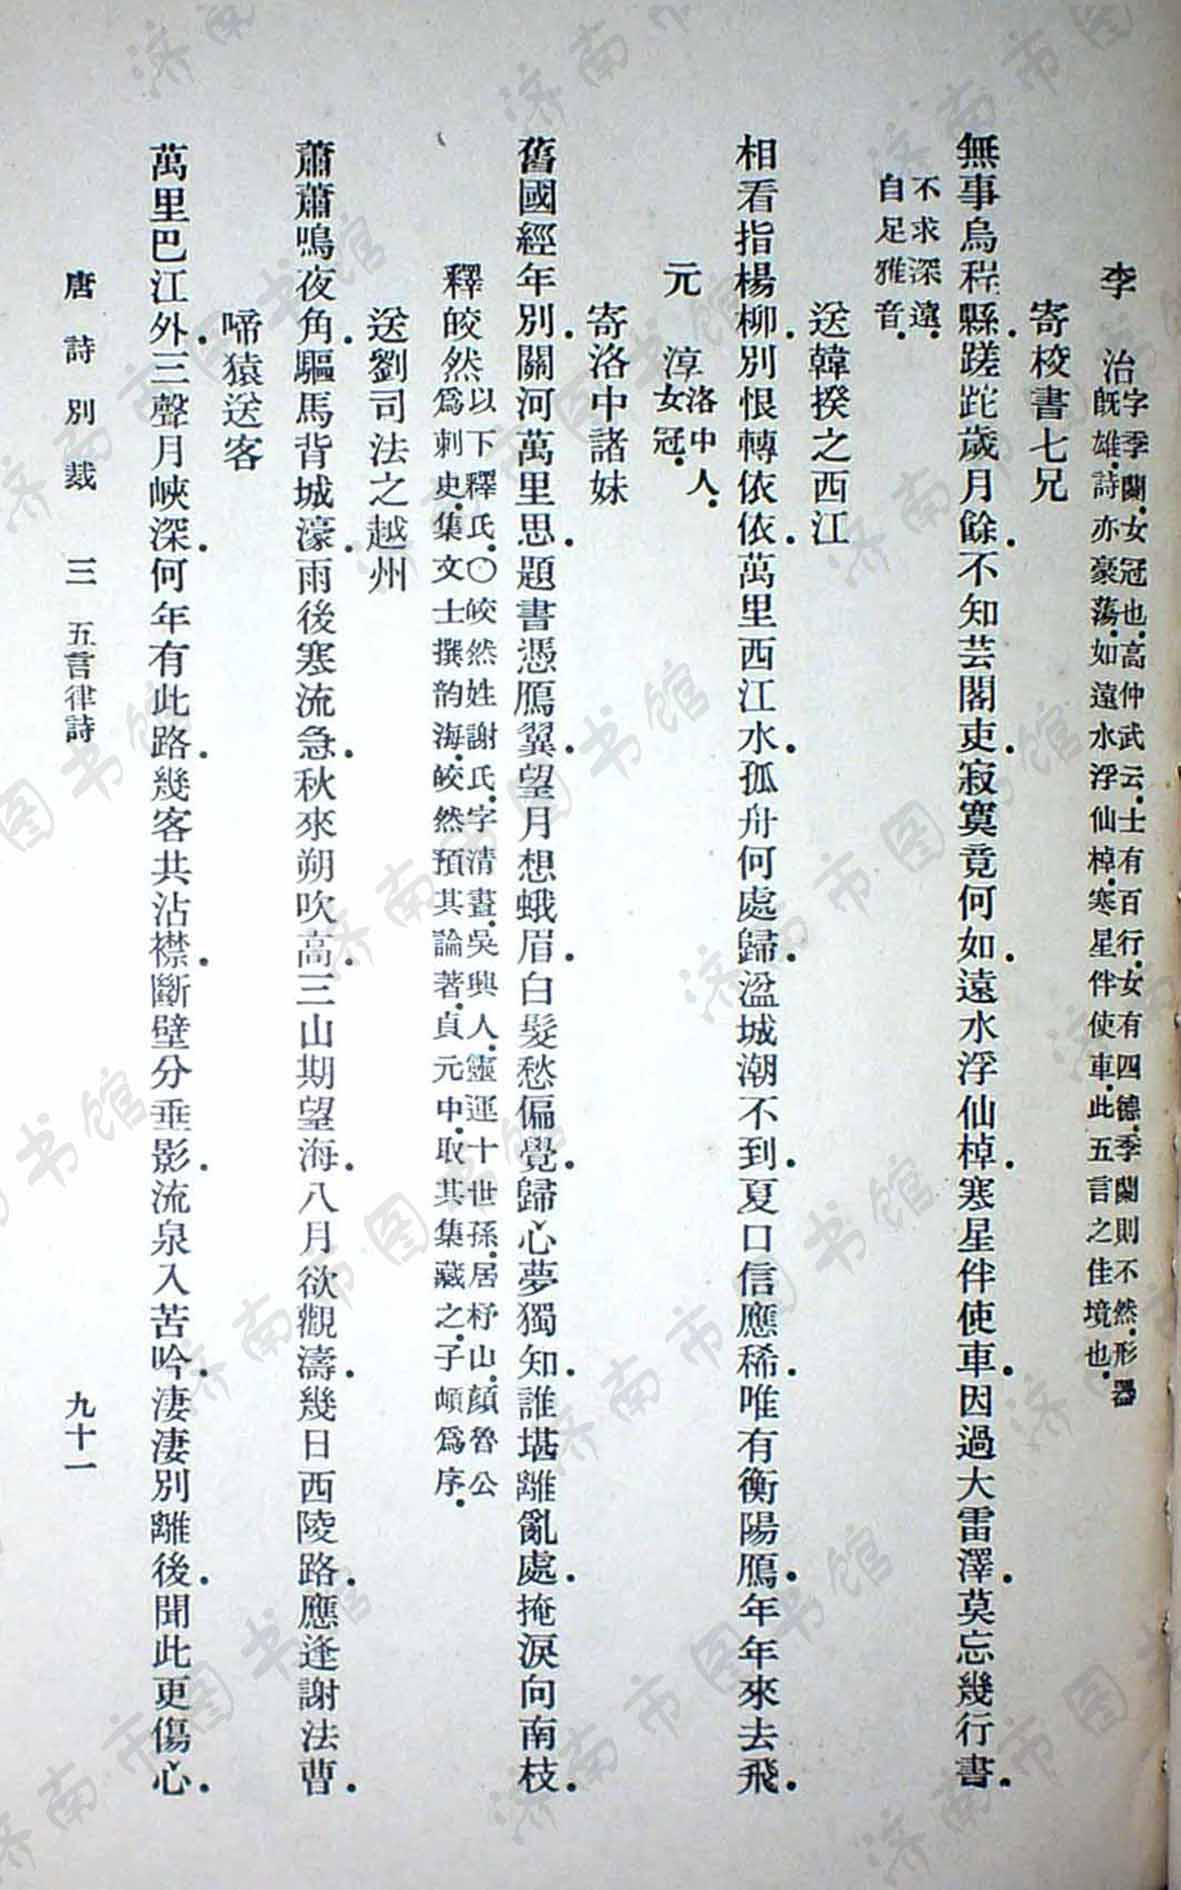 李　治字季蘭．女冠也．高仲武云．士有百行．女有四德．季蘭則不然．形器
既雄．詩亦豪蕩．如遠水浮仙棹．寒星伴使車．此五言之佳境也．
寄校書七兄
無事烏程縣．蹉跎歲月餘．不知芸閣吏．寂寞竟何如．遠水浮仙棹．寒星伴使車．因過大雷澤．莫忘幾行書．
不求深遠．
自足雅音．
送韓揆之西江
相看指楊柳．別恨轉依依．萬里西江水．孤舟何處歸．湓城潮不到．夏口信應稀．唯有衡陽鴈．年年來去飛．
元　淳洛中人．
女冠．
寄洛中諸妹
舊國經年別．關河萬里思．題書憑鴈翼．望月想蛾眉．白髮愁偏覺．歸心夢獨知．誰堪離亂處．掩淚向南枝．
釋皎然以下釋氏．〇皎然姓謝氏．字清晝．吳興人．靈運十世孫．居杼山．顔魯公
爲刺史．集文士撰韵海．皎然預其論著．貞元中．取其集藏之．于頔爲序．
送劉司法之越州
蕭蕭鳴夜角．驅馬背城濠．雨後寒流急．秋來朔吹高．三山期望海．八月欲觀濤．幾日西陵路．應逢謝法曹．
啼猿送客
萬里巴江外．三聲月峽深．何年有此路．幾客共沾襟．斷壁分垂影．流泉入苦吟．淒淒別離後．聞此更傷心．
唐詩別裁　三　五言律詩　九十一